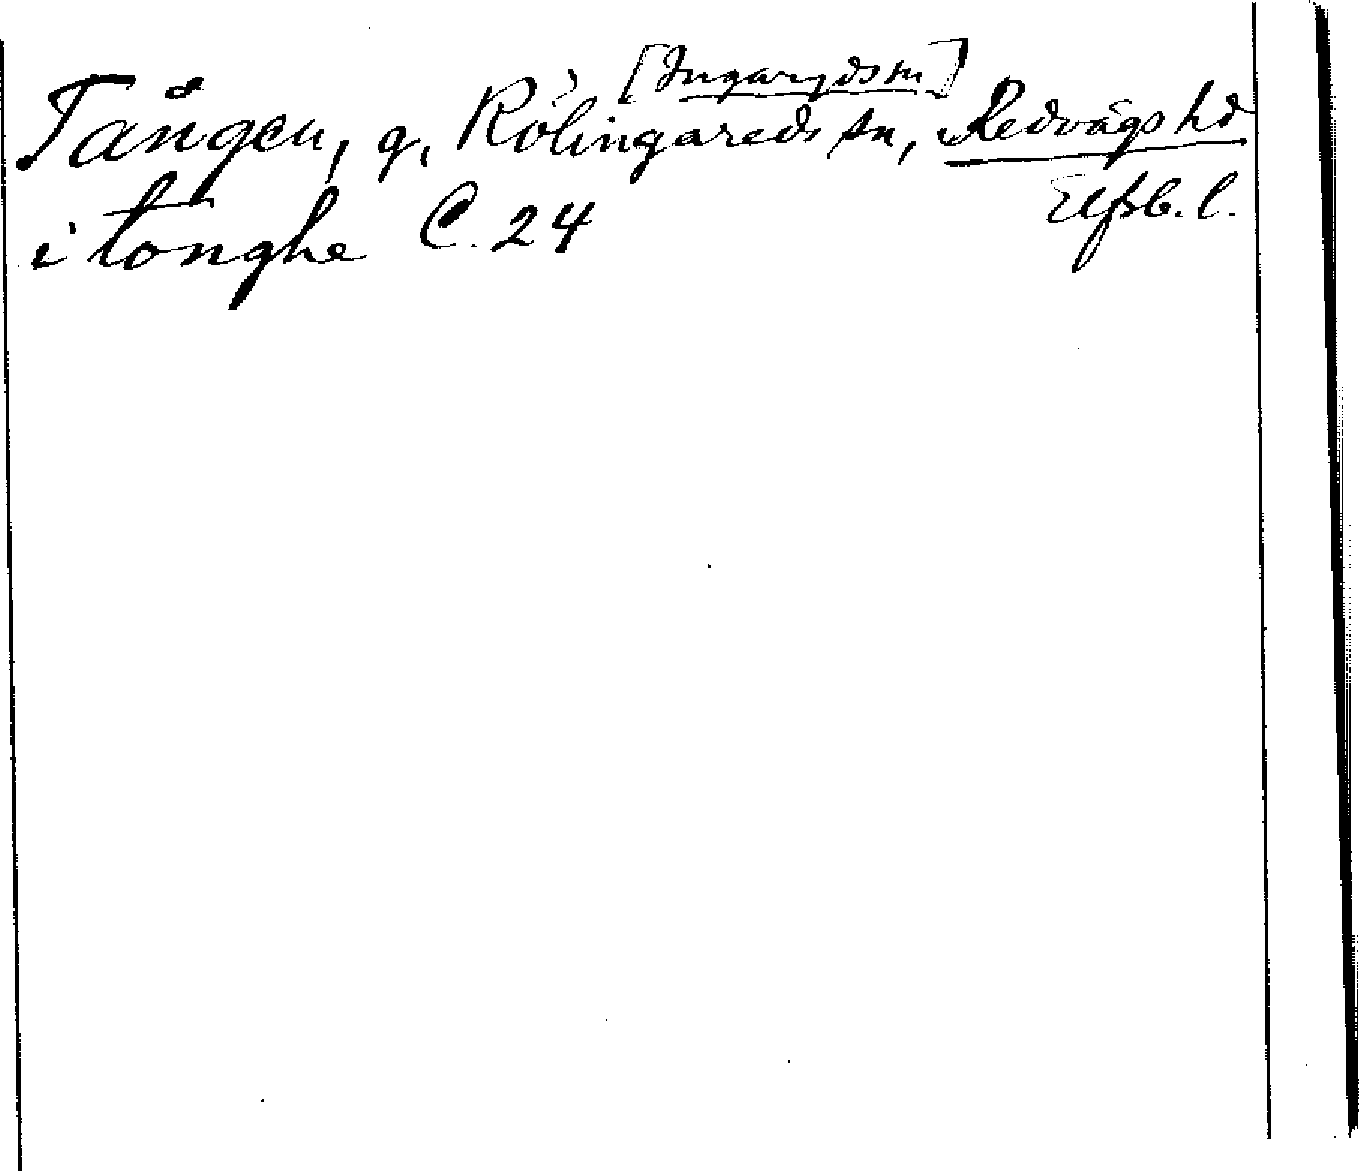 [Ingaryds sn]
Tången, g, Rölingareds sn, Redvägs hd
i tonghe C. 24 Elfsb. l.